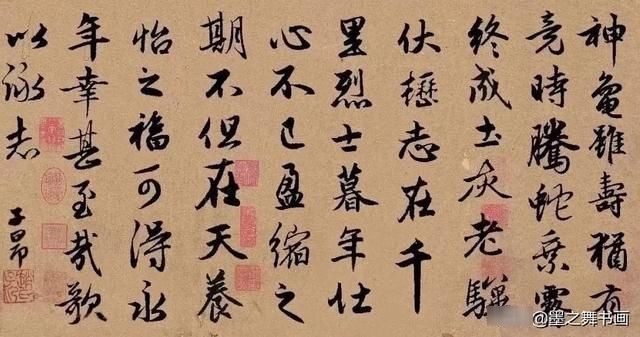 神龜雖壽猶有
竟時騰蛇乘霧
終成土灰老驥
伏櫪志在千
里烈士暮年壯
心不已盈縮之
期不但在天養
怡之福可得永
年幸甚至哉歌
以詠志
子昂
@墨之舞书画